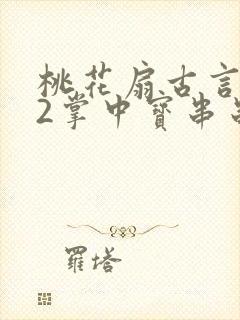 桃花扇古言
2掌中寳串
羅塔